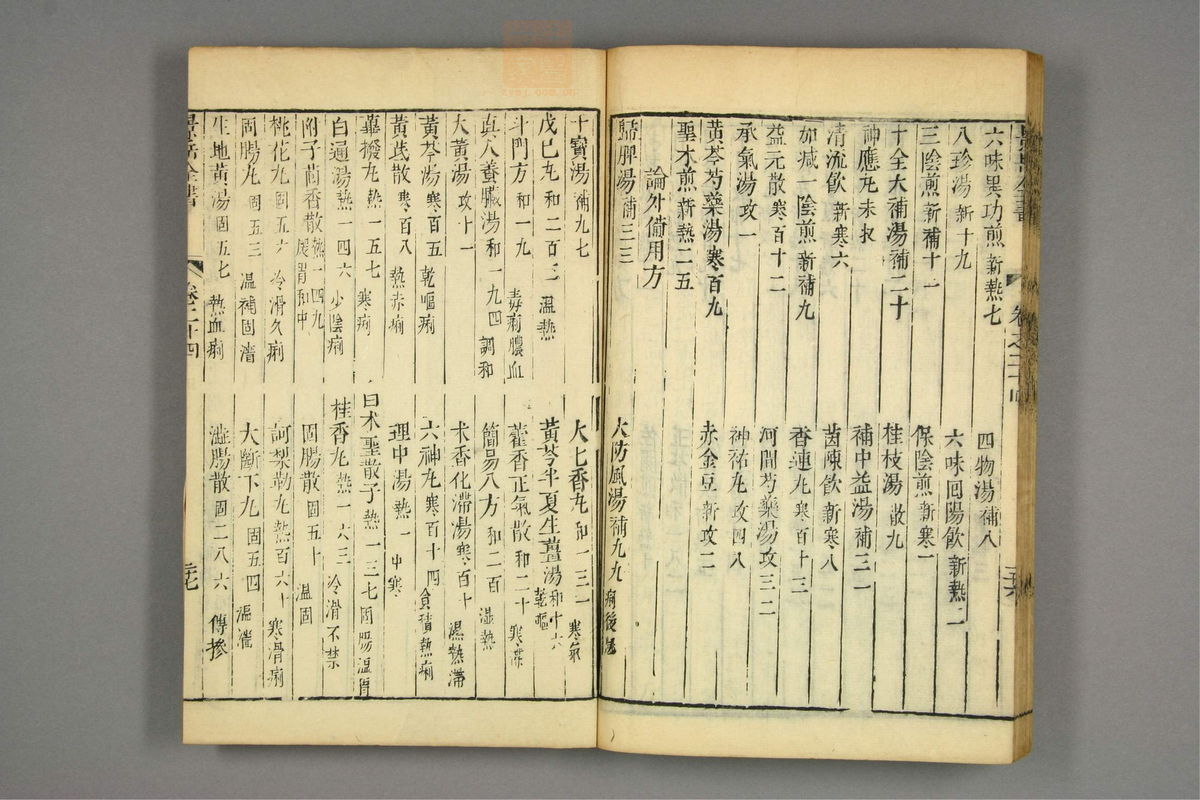 六味異功煎新熱七　四物湯補八
八珍湯新十九　六味回陽飲新熱二
三陰煎新補十一　保陰煎新寒一
十全大補湯補二十　桂枝湯散九
神應丸未收　補中益湯補三一
清流飲新寒六　茵陳飲新寒八
加減一陰煎新補九　香連丸寒百十三
益元散寒百十二　河間芍藥湯攻三二
承氣湯攻一　神祐丸攻四八
黄芩芍藥湯寒百九　赤金豆新攻二
聖术煎新熱二五
論外備用方
歸脾湯補三二　大防風湯補九九　痢後風
十寶湯補九七　大七香丸和一三一　寒氣
戊巳丸和二百三　温熱　黄芩半夏生薑湯和十六　乾嘔
斗門方和一九　毒痢膿血　藿香正氣散和二十　寒滯
真人養臟湯和一九四　調和　簡易八方和二百　濕熱
大黄湯攻十一　木香化滯湯寒百十　濕熱滯
黄芩湯寒百五　乾嘔痢　六神丸寒百十四　食積熱痢
黄芪散寒百八　熱赤痢　理中湯熱一　中寒
薑撥丸熱一五七　寒痢　白术聖散子熱一三七　固腸温胃
白通湯熱一四六　少陰痢　桂香丸熱一六三　冷滑不禁
附子茴香散熱一四九　展胃和中　固腸散固五十　温固
桃花丸固五六　冷滑久痢　訶梨勒丸熱百六十　寒滑痢
固腸丸固五三　温補固澀　大斷下丸固五四　温澀
生地黄湯固五七　熱血痢　澁腸散固二八六　傳摻
景岳全書　卷二十四